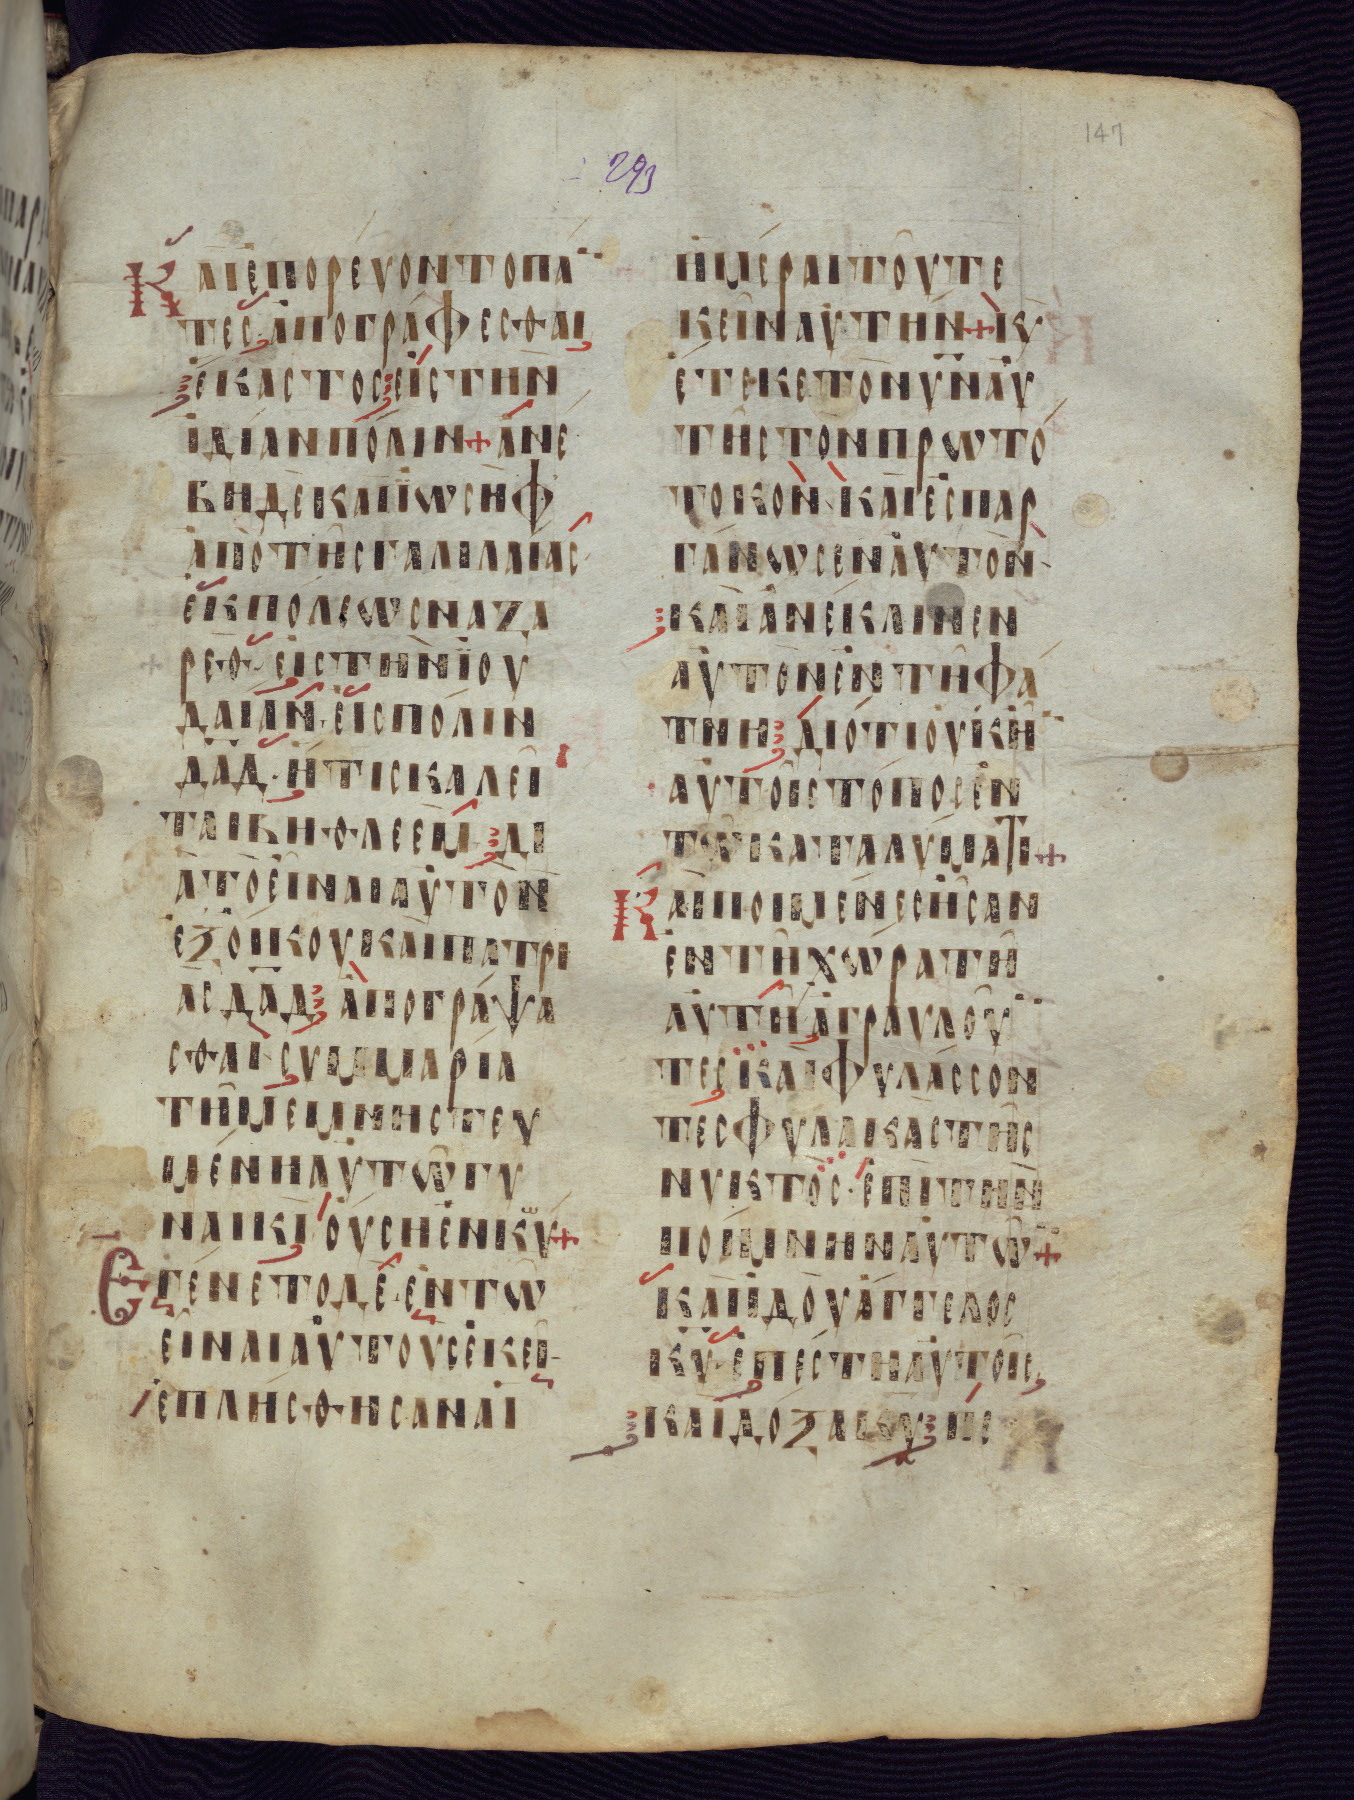 147
293
Καὶ ἐπορεύοντο πά
τες ἀπογράφεσθαι
ἕκαστος εἰς τὴν
ἰδίαν πόλιν + ἀνέ
βη δὲ καὶ ϊωσὴφ
ἀπὸ τῆς γαλιλαίας
ἐκ πόλεως ναζα
ρεθ · εἰς τὴν ϊου
δαίαν · εἰς πόλιν
δαδ · ἥτις καλεῖ
ται βηθλεέμ δι
ὰ τὸ εἶναι αὐτὸν
ἐξ οἴκου καὶ πατρι
ᾶς δαδ ἀπογράψα
σθαι σὺν μαρία
τῆ μεμνηστευ
μένη αὐτῶ γυ
ναικὶ οὔση ἐνκύω +
Ἐγένετο δὲ ἐν τῶ
εἶναι αὐτοὺς ἐκεῖ
ἐπλήσθησαν αἱ
ἡμέραι τοῦ τε
κεῖν αὐτὴν + κ
ἔτεκε τὸν υν αὐ
τῆς τὸν πρωτό
τοκον · καὶ ἐσπαρ
γάνωσεν αὐτὸν ·
καὶ ἀνέκλινεν
αὐτὸν ἐν τῆ φά
τνη διότι οὐκ ἦ
αὐτοῖς τόπος ἐν
τῶ καταλύματι +
Κ αὶ ποιμένες ἦσαν
ἐν τῆ χώρα τῆ
αὐτῆ ἀγραυλοῦ
τες καὶ φυλάσσον
τες φυλακὰς τῆς
νυκτός · ἐπὶ τὴν
ποίμνην αὐτῶ +
καὶ ἰδοὺ ἄγγελος
κυ · ἐπέστη αὐτοῖς
καὶ δόξα κυ πε